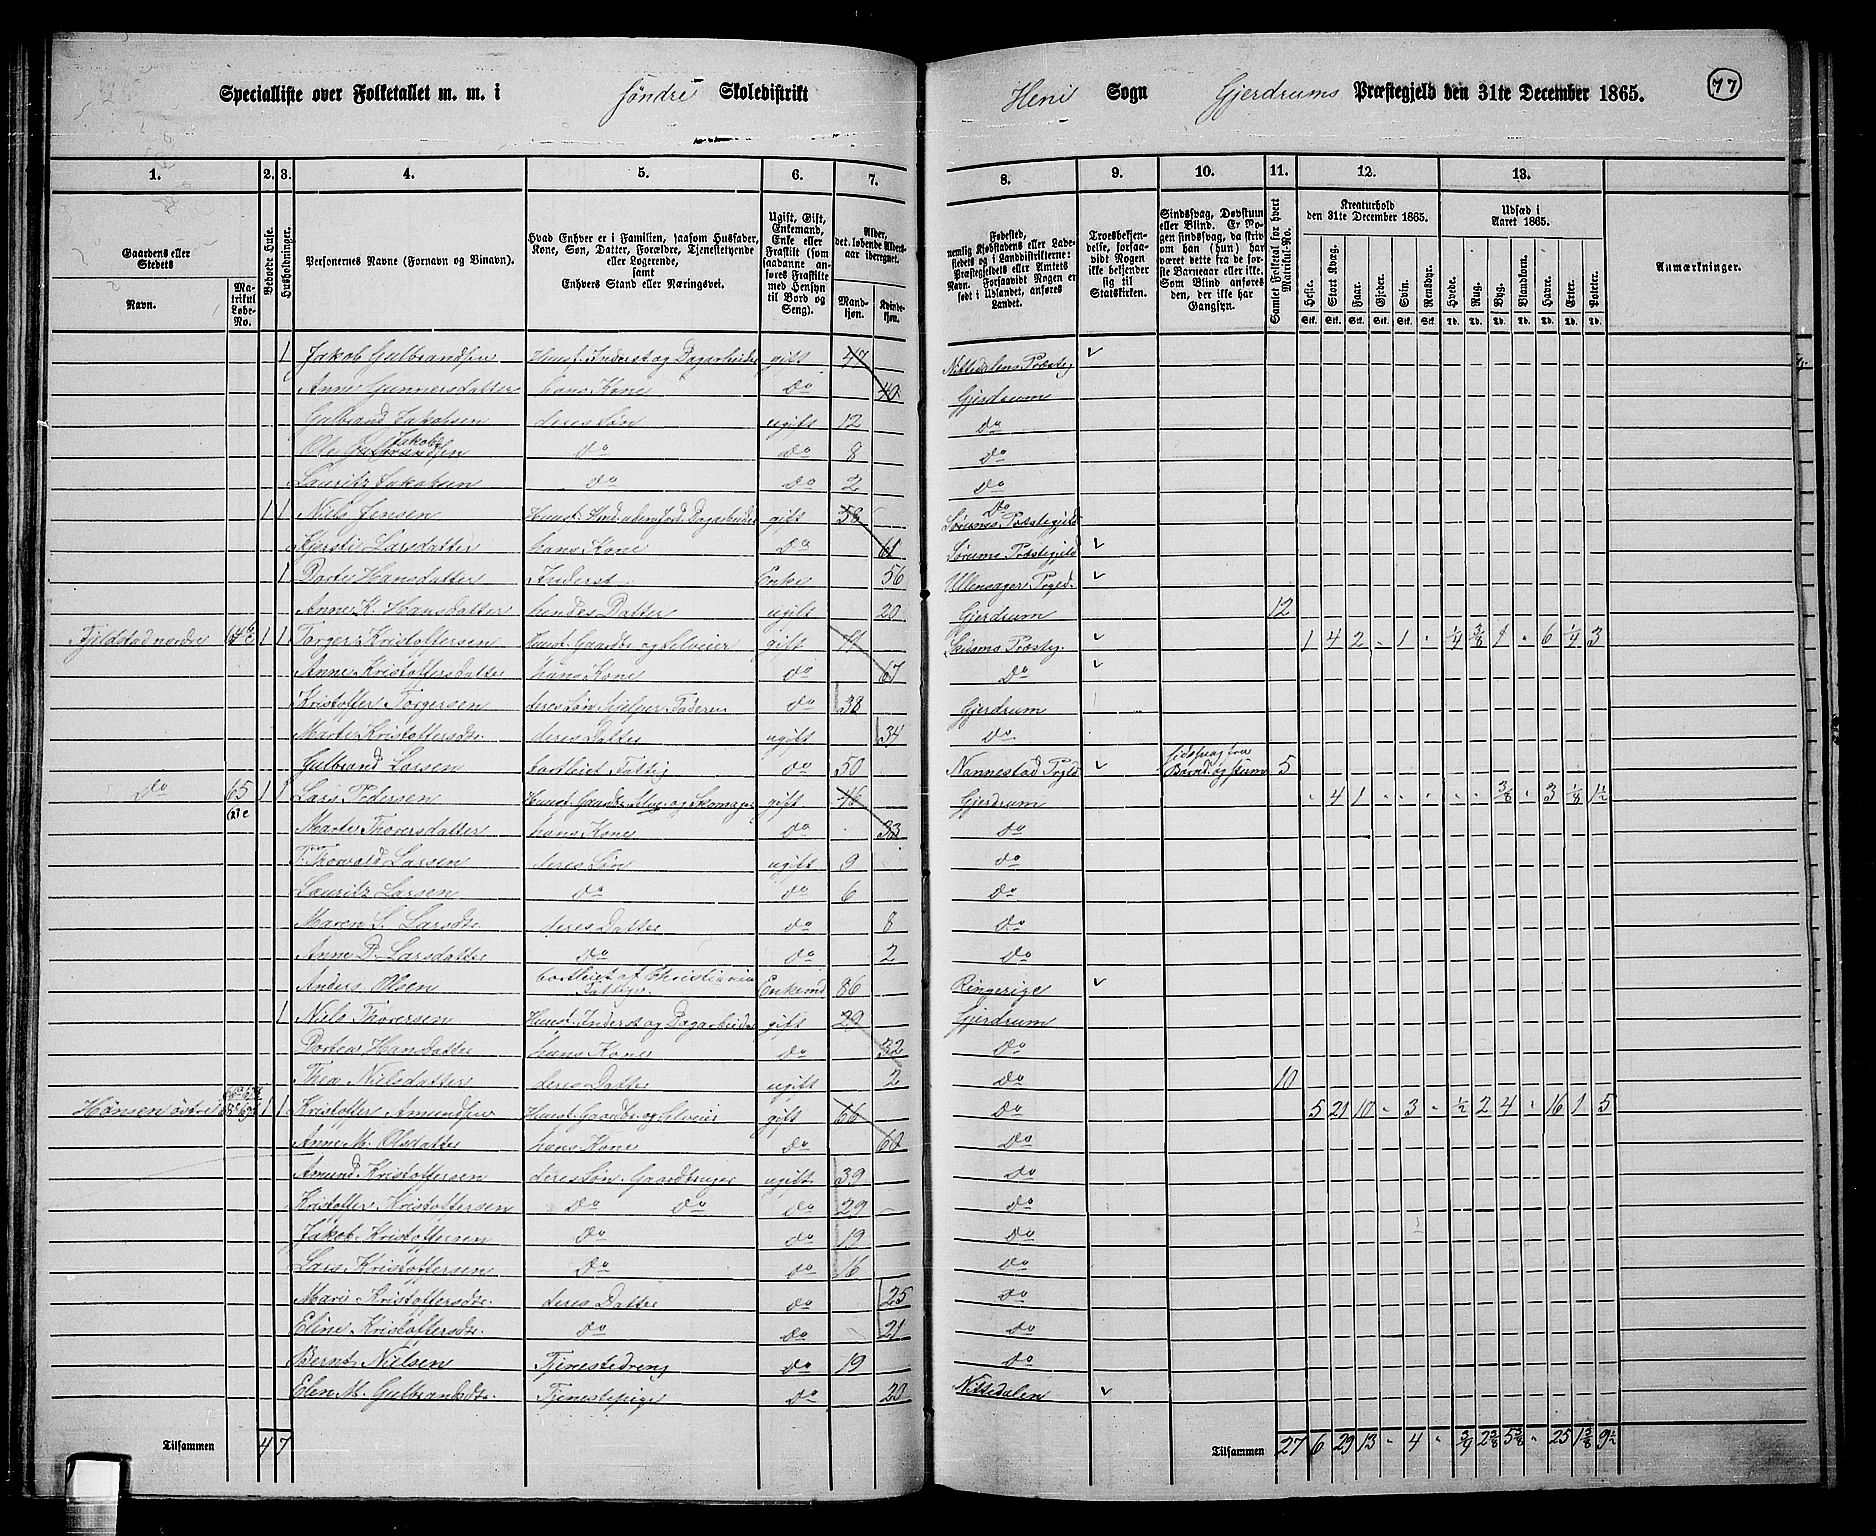 Specialliste over Folketallet m. m. i Søndre Skoledistrikt Heni Sogn Gjerdrums Præstegjeld den 31te December 1865. 77
1. 2. 3. 4. 5. 6. 7. 8. 9. 10. 11. 12. 13.
Gaardens eller Stedets
Navn. Matrikul Løbe-No.
Beboede Huse.
Husholdninger.
Personernes Navne (Fornavn og Binavn).
Hvad Enhver er i Familien, saasom Husfader, Kone, Søn, Datter, Forældre, Tjenestetyende eller Logerende, samt Enhvers Stand eller Næringsvei.
Ugift, Gift, Enkemand, Enke eller Fraskilt (som saadanne anføres Fraskilte med Hensyn til Bord og Seng).
Alder, det løbende Alders-aar iberegnet.
Mandkjøn. Kvindekjøn.
Fødested, nemlig Kjøbstadens eller Ladestedets og i Landdistrikterne: Præstegjeldets eller Amtets Navn. Forsaavidt Nogen er født i Udlandet, anføres Landet.
Troesbekjendelse, forsaavidt Nogen ikke bekjender sig til Statskirken.
Sindssvag, Døvstum eller Blind. Er Nogen sindssvag, da skrives det fra de første Barneaar eller ikke. Som Blind anføres den, der ikke har Gangsyn.
Samlet Folketal for hvert Matrikul-No.
Kreaturhold den 31te December 1865.
Heste. Stort Kvæg. Faar. Gjeder. Svin. Rensdyr.
Udsæd i Aaret 1865.
Hvede. Rug. Byg. Blandkorn. Havre. Erter. Poteter.
Anmærkninger.
1 Jakob Gulbrandsen Huusf. Inderst og Dagarbeider gift 47 Nittedalens Præsteg
Anne Gunnersdatter hans Kone do 40 Gjerdrum
Gulbrand Jakobsen deres Søn ugift 12 do
Ole Jakobsen do do 8 do
Lauritz Jakobsen do do 2 do
1 1 Niels Jensen gift 58 Sørums Præstegjeld
Kjersti Larsdatter hans Kone do 61 Sørums Præstegjeld
1 Dorte Hansdatter Inderst Enke 56 Ullensager Prgld.
Anne K. Hansdatter hendes Datter ugift 20 Gjerdrum 12
Fjeldstad nordre 1 1 Torger Kristoffersen Huusf. Gaardbr. og Selveier gift Præsteg. 1 4 2 - 1 - 1/4 3/8 1 - 6 1/4 3
Anne Kristoffersdatter hans Kone do 67 do
Kristoffer Torgersen deres Søn hjelper Faderen do 38 Gjerdrum
Marte Kristoffersdtr. deres Datter ugift 34 do
Gulbrand Larsen bortleiet Fattig do 50 Nannestad Prgld 5
do 65 1 1 Lars Pedersen Huusf. Gaardbr. Selvg. og Skomager gift 46 Gjerdrum - 4 1 - - - - - 3/8 - 3 1/8 1 1/2
Marte Thoresdatter hans Kone do 33 do
T. Thorvald Larsen deres Søn ugift 9 do
Lauritz Larsen do do 6 do
Maren S. Larsdtr. deres Datter do 8 do
Anne D. Larsdatter do do 2 do
Anders Olsen bortleiet af Christiania Enkemd 86 Ringerige
1 Niels Thoresen Huusf. Inderst og Dagarbeider gift 29 Gjerdrum
Dortea Hansdatter hans Kone do 32 do
Thea Nielsdatter deres Datter ugift 2 do 10
Hønsen østre 1 1 Kristoffer Amundsen Huusf. Gaardbr. og Selveier gift 66 do 5 21 10 - 3 - 1/2 2 4 - 16 1 5
Anne M. Olsdatter hans Kone do 60 do
Amund Kristoffersen deres Søn. Gaardbruger ugift 39 do
Kristoffer Kristoffersen do do do 29 do
Jakob Kristoffersen do do 19 do
Lars Kristoffersen do do 16 do
Marie Kristoffersdtr. deres Datter do 25 do
Eline Kristoffersdtr. do do 21 do
Bernt Nielsen Tjenestedreng do 19 do
Elen M. Gulbrandsdtr. Tjenestepige do 20 Nittedalen
Tilsammen 4 7 Tilsammen 27 6 29 13 - 4 - 3/4 2 3/8 5 3/8 - 25 1 3/8 9 1/2